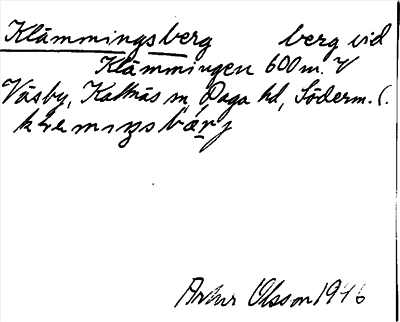 Klämmingsberg berg vid
Klämmingen 600 m. V
Väsby, Kattnäs sn, Daga hd, Söderm. l.
Artur Olsson 1946